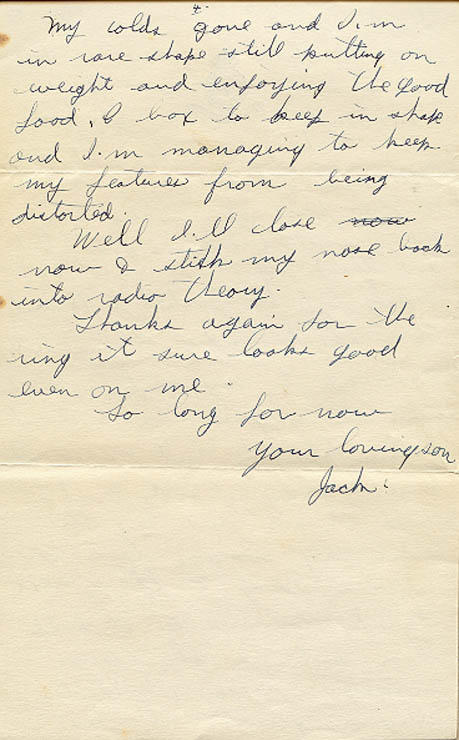 4.
My colds gone and I.m
in rare shape still putting on
weight and enjoying the good
food. I box to keep in shape
and I.m managing to keep
my features from being
distorted.
Well I.ll close now
now & stick my nose back
into radio theory.
Thanks again for the
ring it sure looks good
even on me.
So long for now
Your loving son
Jack.